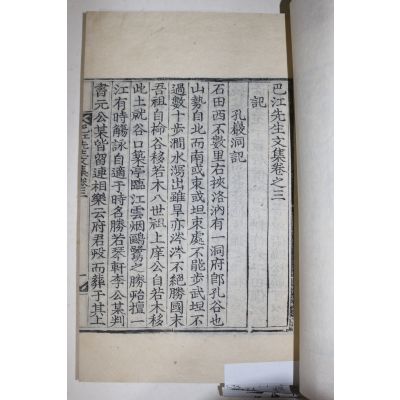 巴江先生文集卷之三
記
孔巖洞記
石田西不數里右挾洛汭有一洞府卽孔谷也
山勢自北而南或束或坦束處不能步武坦不
過數十步澗水瀉出雖旱亦泙泙不絕勝國末
吾祖自柳谷移若木八世祖上庠公自若木移
此土就谷口築亭臨江雲烟鷗鷺之勝殆擅一
江有時觴詠自適于時名勝若琴軒李公某判
書元公某皆留連相樂云府君歿而葬于其上
巴江先生文集卷三
一